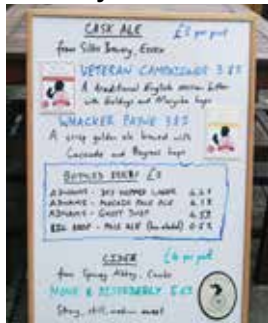 CASK ALE £3 per pint
from Silks Brewery, Essex
VETERAN CAMPAIGNER 3.8%
A traditional English session bitter
with Goldings and hops
WHACKER PAYNE 3.8%
A crisp golden ale brewed with
Cascade and hops
BOTTLED BEERS £3
ADNAMS - DRY HOPPED LAGER 4.2%
ADNAMS - MOSAIC PALE ALE 4.1%
ADNAMS - GHOST SHIP 4.5%
BIG DROP - PALE ALE 0.5%
CIDER £4 per pint
from Abbey,
& DISORDERLY
Strong, still, medium sweet